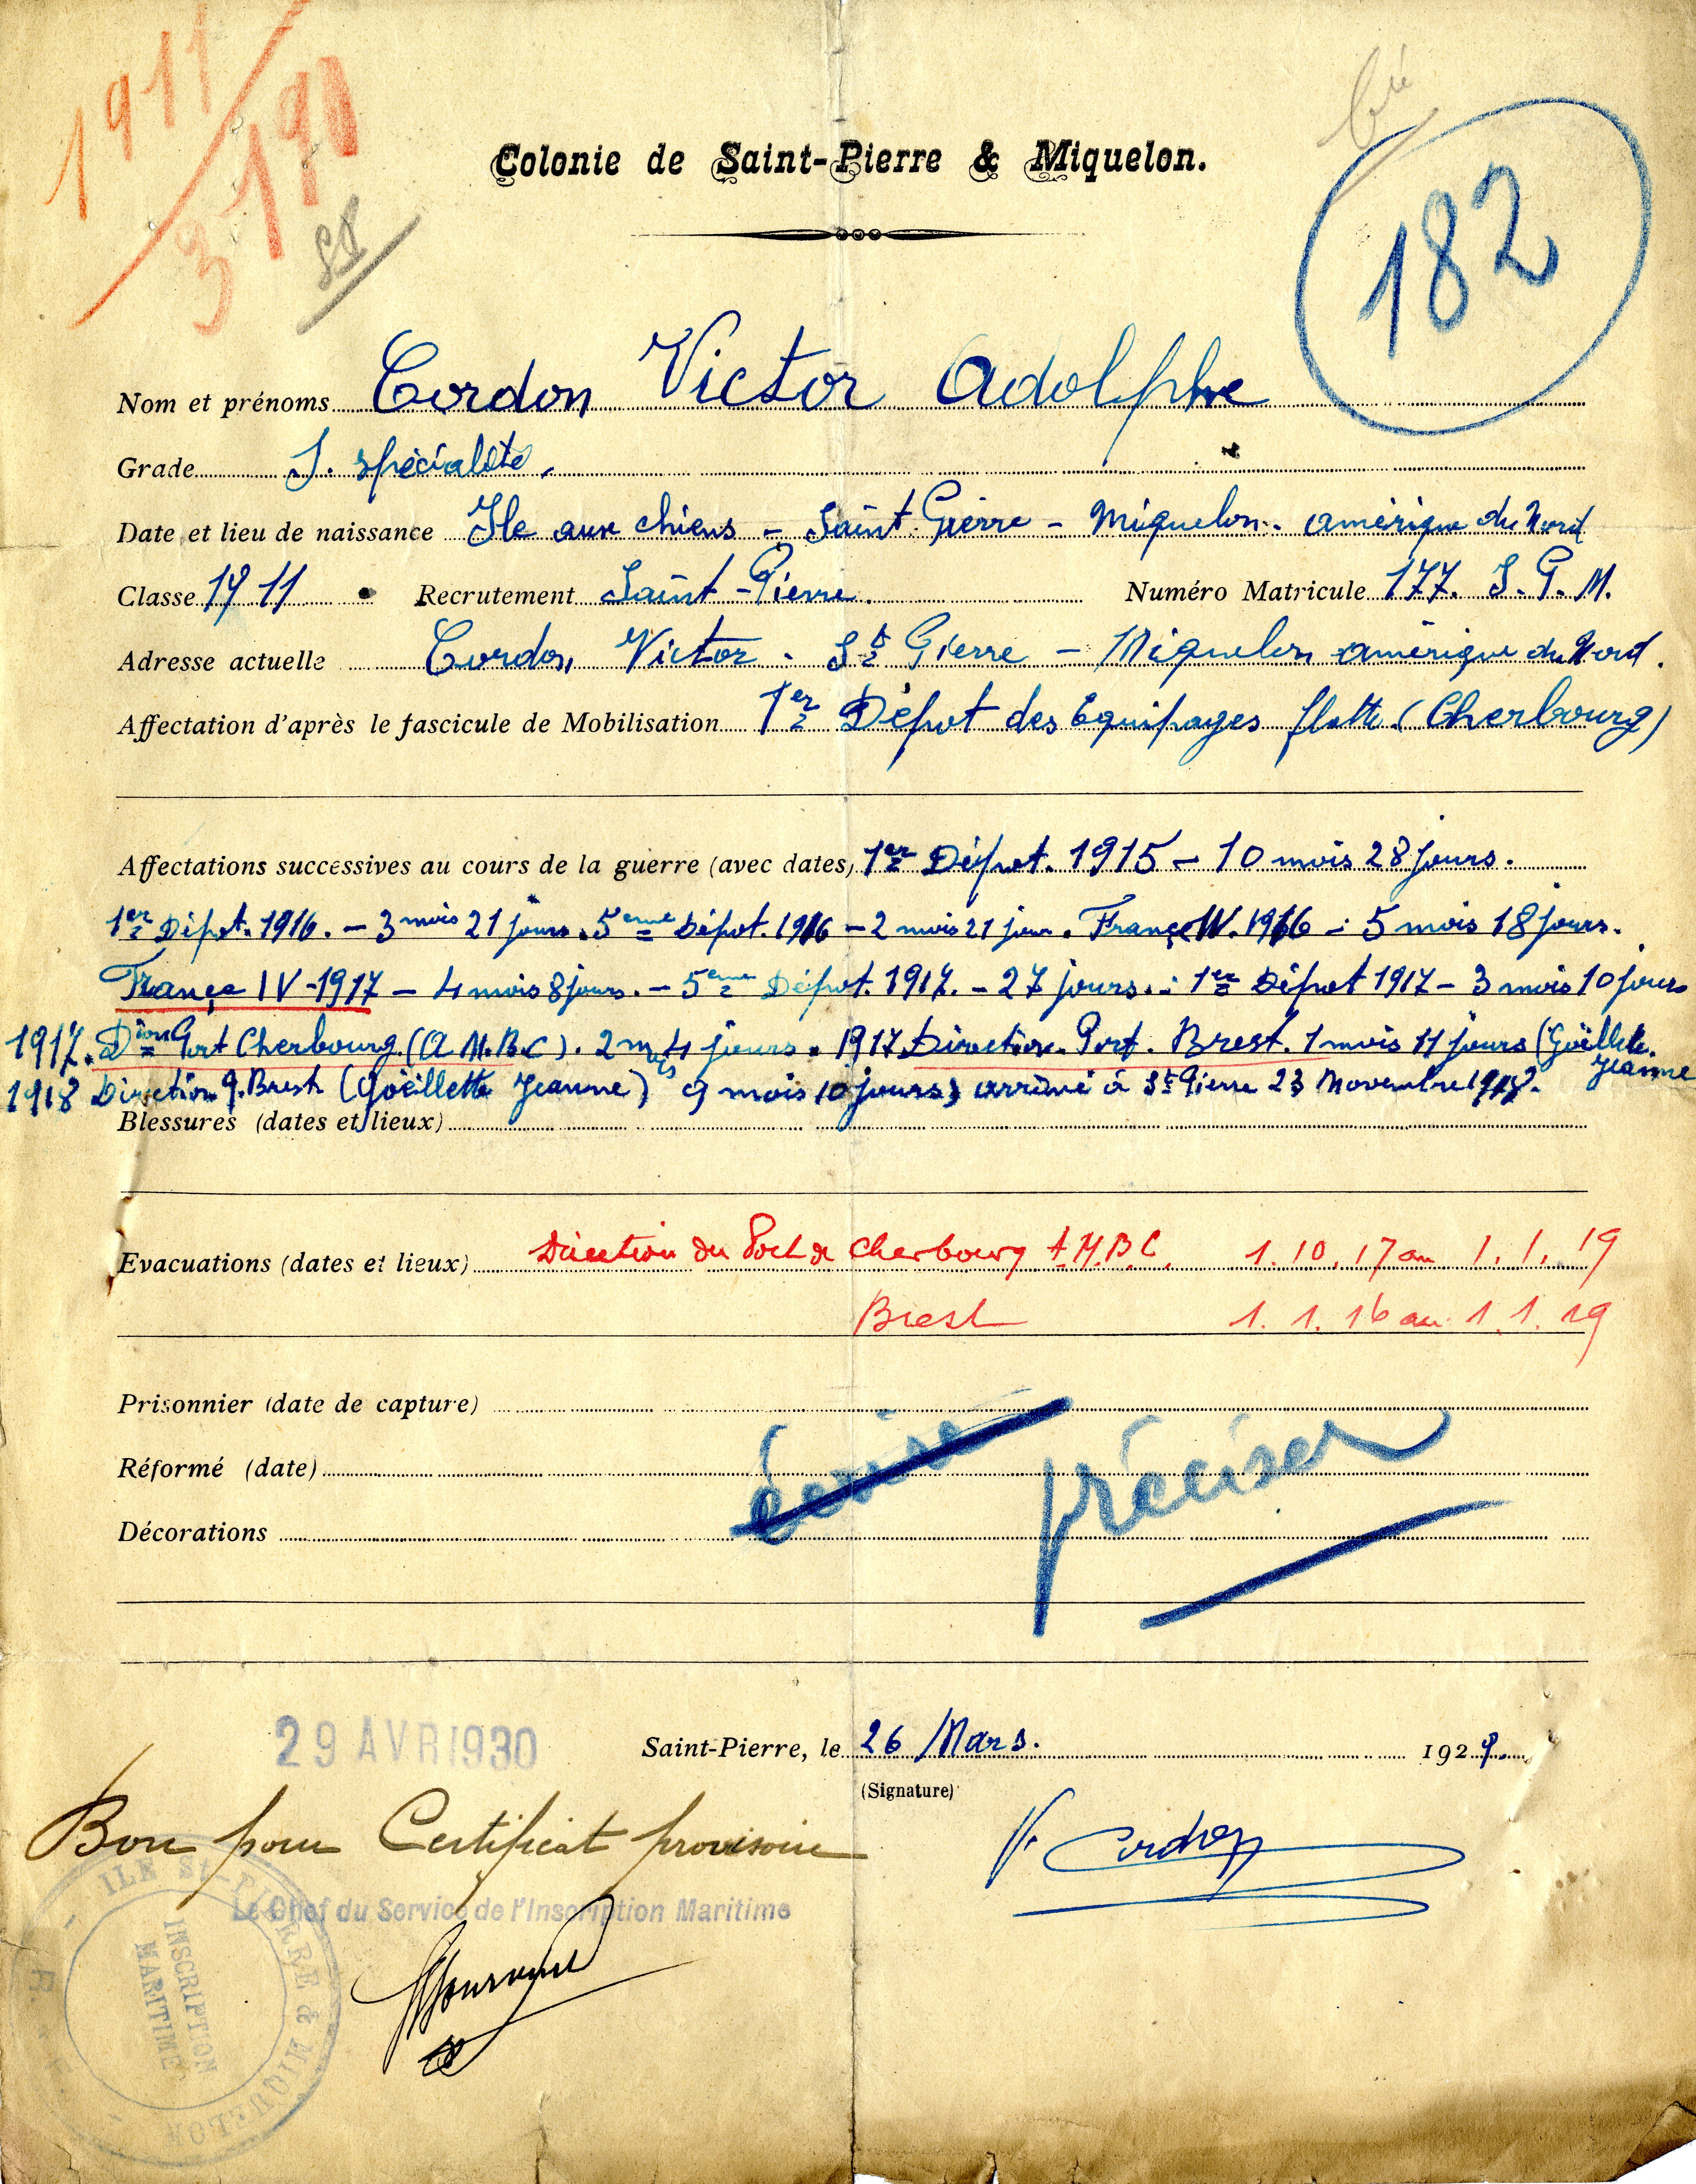 1911
3190
182
Colonie de Saint-Pierre & Miquelon.
Nom et prénoms Cordon Victor Adolphe
Grade S. spécialité.
Date et lieu de naissance Ile aux chiens - Saint Pierre - Miquelon - amérique du Nord
Classe 1911 Recrutement Saint-Pierre. Numéro Matricule 177. S. P. M.
Adresse actuelle Cordon, Victor - St Pierre - Miquelon amérique du Nord.
Affectation d'après le fascicule de Mobilisation 1er Dépot des Equipages flotte (Cherbourg)
Affectations successives au cours de la guerre (avec dates) 1er Dépot. 1915 - 10 mois 28 jours.
1er Dépot. 1916. - 3 mois 21 jours. 5eme Dépot. 1916 - 2 mois 21 jour. France IV. 1916 - 5 mois 18 jours.
France IV - 1917 - 4 mois 8 jours. - 5eme Dépot. 1917. - 27 jours. - 1er Dépot 1917 - 3 mois 10 jours
1917. Dion Port Cherbourg. (A. M. B. C). 2 mois 4 jours. 1917 Direction. Port. Brest. 1 mois 11 jours (Goëllette. Jeanne
1918 Direction P. Brest (Goëllette Jeanne) 9 mois 10 jours) arrivé à St Pierre 23 Novembre 1918.
Blessures (dates et lieux)
Evacuations (dates et lieux) Direction du Port de Cherbourg A.M.B.C. 1. 10. 17 au 1. 1. 19
Brest 1. 1. 16 au 1. 1. 19
Prisonnier (date de capture)
Réformé (date)
Décorations
écrire préciser
29 AVR 1930
Saint-Pierre, le 26 Mars. 1929.
(Signature)
Bon pour Certificat provisoire
V. Cordon
Le Chef du Service de l'Inscription Maritime
ILE St-PIERRE & MIQUELON
INSCRIPTION
MARITIME